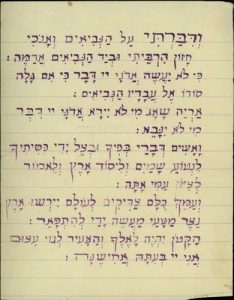 ודברתי על הנביאים ואנכי
חזון הרביתי וביד הנביאים אדמה :
כי לא יעשה אדני יי דבר כי אם גלה
סודו אל עבדיו הנביאים :
אריה שאג מי לא יירא אדני יי דבר
מי לא ינבא :
ואשים דברי בפיך ובצל ידי כסיתיך
לנטוע שמים וליסוד ארץ ולאמור
לציון עמי אתה :
ועמך כלם צדיקים לעולם יירשו ארץ
נצר מטעי מעשה ידי להתפאר :
הקטן יהיה לאלף והצעיר לגוי עצום
אני יי בעתה אחישנה :